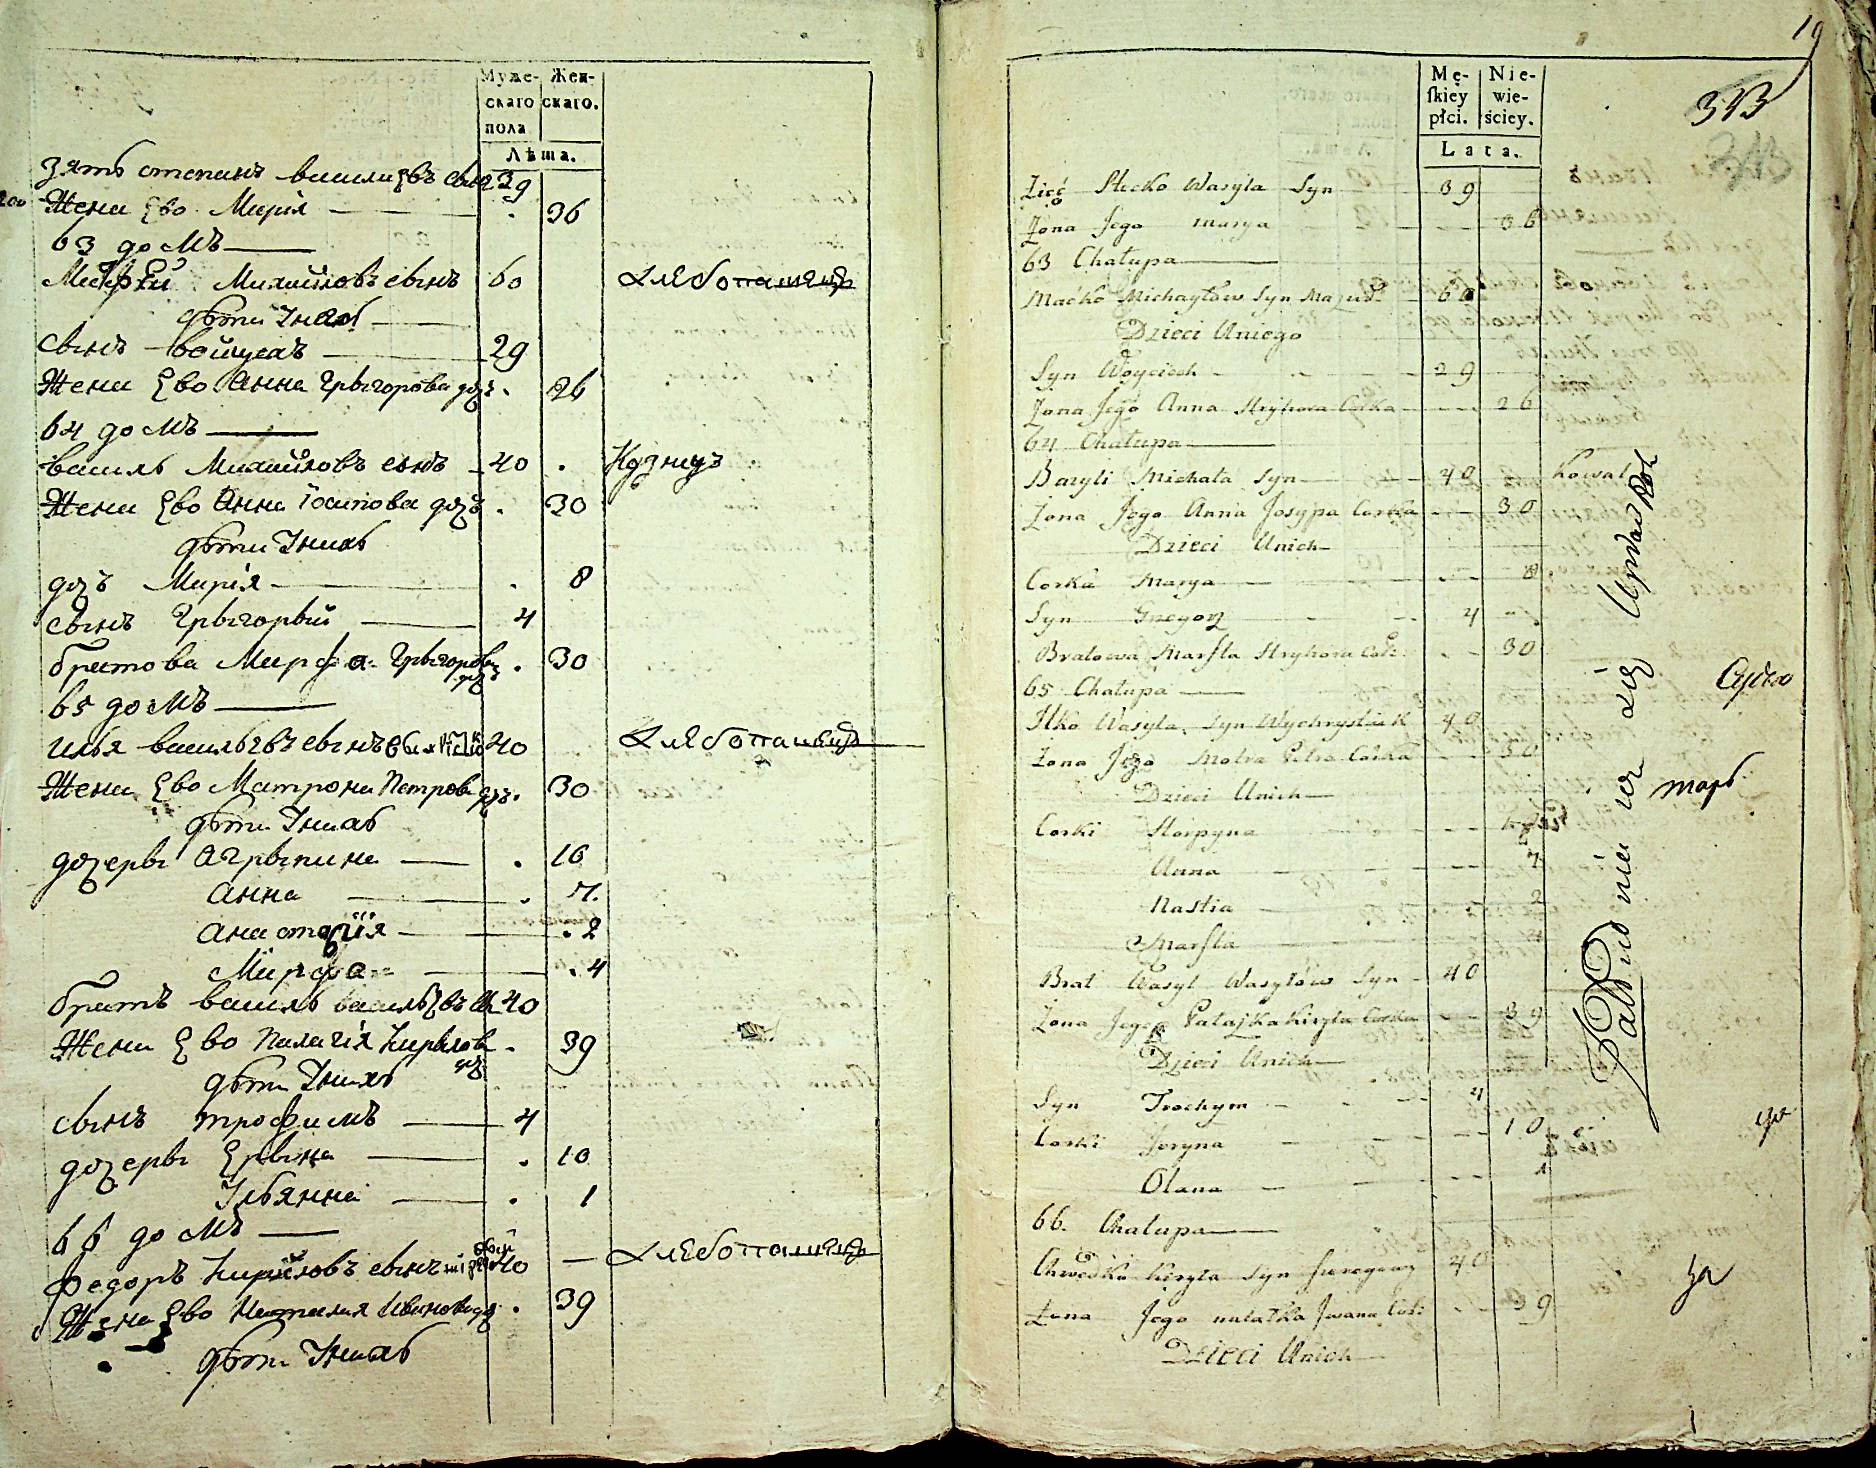 Муже-
скаго
пола
Жен-
скаго.
Лѣта.
зять степанъ василиевъ сынъ 39
Жена Ево Марія 36
63 домъ
Михайловъ сынъ 60 хлебопашецъ
дѣти Iнихъ
сынъ войцехъ 29
Жена Ево Анна Грыгорова доч. 26
64 домъ
василь Михайловъ сынъ 40 Кузнецъ
Жена Ево Анна Iосипова дочъ 30
дѣти Iнихъ
дочъ Марія 8
сынъ Грыгорый 4
братова Марфа Грыгорова доч 30
65 домъ
илья васильевъ сынъ 40 хлебопашецъ
Жена Ево Матрона Петрова доч. 30
дѣти Iнихъ
дочеры Агрыпина 10
Анна 7.
Анастасiя 2
Марфа 4
братъ василь васильевъ 40
Жена Ево Палагiя Кирылова доч 39
дѣти Iнихъ
сынъ трофимъ 4
дочеры Ерына 10
Ульянна 1
66 домъ
Федоръ Кирыловъ сынъ 40 — хлебопашецъ
Жена Ево Наталия Иванова доч. 39
дѣти Iнихъ
19
Mę-
ſkiey
płci.
Nie-
wie-
ściey.
Lata.
313
313
Zięć Stecko Wasyla Syn 39
Zona Jego Marya 36
63 Chałupa
Maćko Michayłow Syn Mazur 60
Dzieci Uniego
Syn Woyciech 29
Zona Jego Anna Hryhora Corka 26
64 Chałupa
Bazyli Michała Syn 40 Kowal
Zona Jego Anna Josypa Corka 30
Dzieci Unich
Corka Marya 8
Syn Gregory 4
Bratowa Marfta Hryhora Cor. 30
65 Chałupa
Ilko Wasyla Syn Wychrystiuk 40
Zona Jego Motra Petra Corka 30
Dzieci Unich
Corki Horpyna
Anna 7
Nastia 2
Marfta 4
Brat Wasyl Wasylów Syn 40
Zona Jego Pałajka Kiryła Corka 39
Dzieci Unich
Syn Trochym 4
Corki Joryna 10
Olana 1
66. Chałupa
Chwedko Kiryła Syn 40
Zona Jego Natałka Jwana Cor: 39
Dzieci Unich